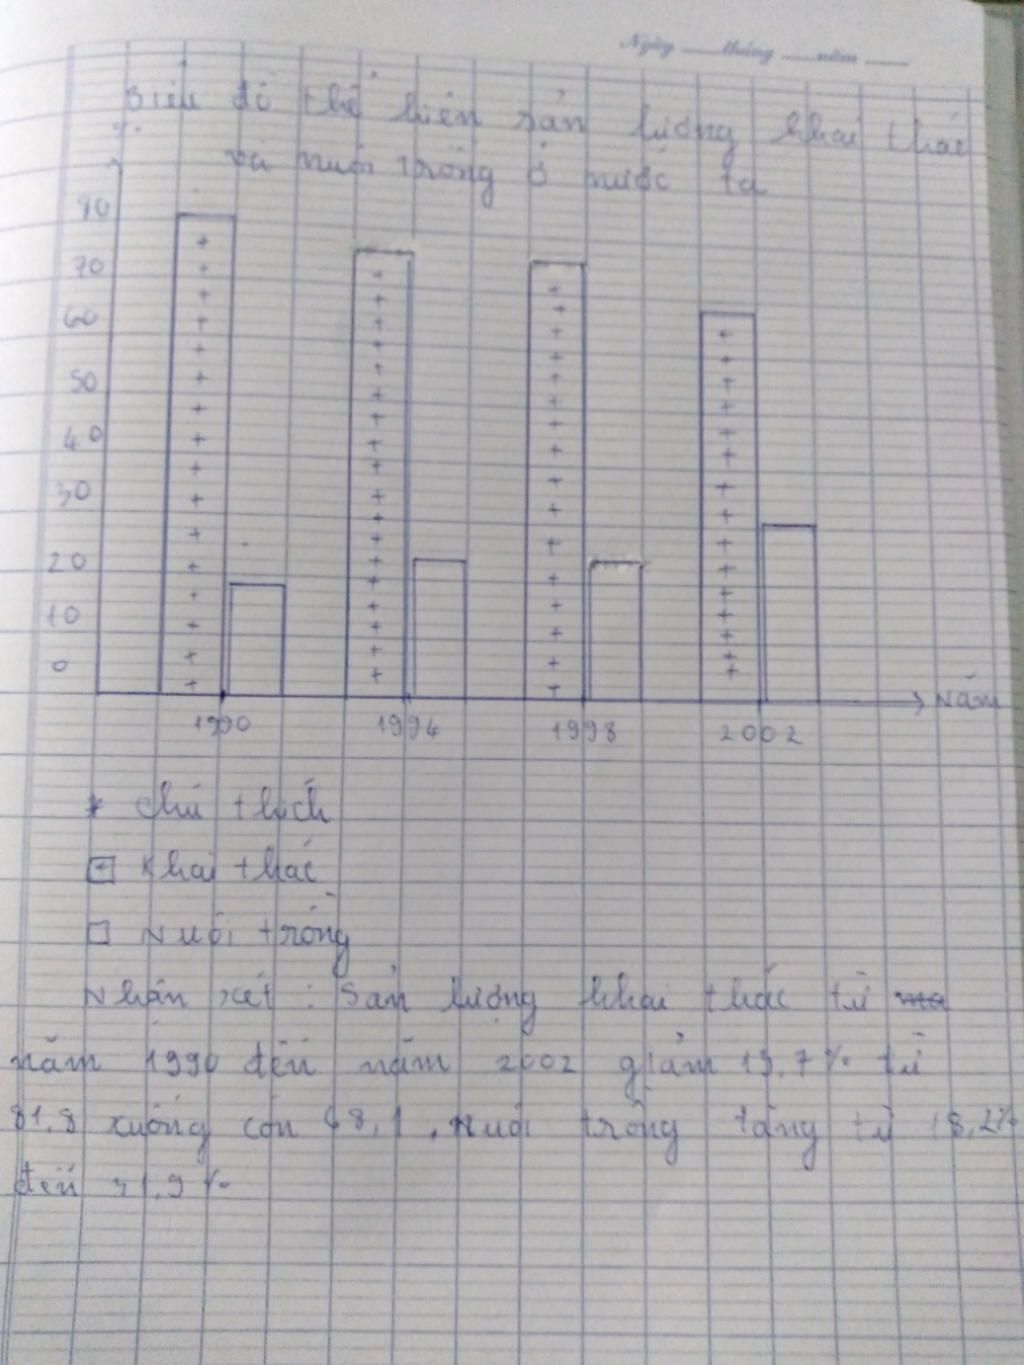 Ngày tháng năm
Biểu đồ thể hiện sản lượng khai thác
%
và nuôi trồng ở nước ta
80
70
60
50
40
30
20
10
0
Năm
1990 1994 1998 2002
* Chú thích
+ Khai thác
Nuôi trồng
Nhận xét : Sản lượng khai thác từ
năm 1990 đến năm 2002 giảm 13,7% từ
81,8 xuống còn 68,1 , Nuôi trồng tăng từ 18,2%
đến 31,9%